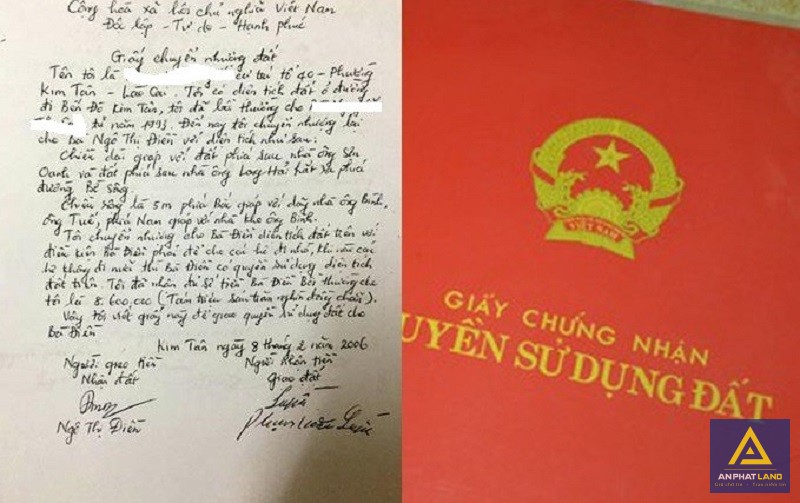 Cộng hoà xã hội chủ nghĩa Việt Nam
Độc lập - Tự do - Hạnh phúc
Giấy chuyển nhượng đất
Tên tôi là cư trú tổ 40 - Phường
Kim Tân - Lào Cai. Tôi có diện tích đất ở đường
đi Bến Đò Kim Tân, tôi đã bồi thường cho
từ năm 1993. Đến nay tôi chuyển nhượng lại
cho Bà Ngô Thị Điền với diện tích như sau:
Chiều dài giáp với đất phía sau nhà ông Sơn
Oanh và đất phía sau nhà ông Long Hải
đường Bờ sông.
Chiều rộng là 5m phía Bắc giáp với nhà ông Bình,
ông Tuế, phía Nam giáp với nhà kho ông Bình.
Tôi chuyển nhượng cho Bà Điền diện tích đất trên với
điều kiện Bà Điền phải để cho các hộ đi nhờ, khi nào các
hộ không đi nữa thì Bà Điền có quyền sử dụng diện tích
đất trên. Tôi đã nhận đủ số tiền Bà Điền Bồi thường cho
tôi là 8.600.000 (Tám triệu sáu trăm nghìn đồng chẵn).
Vậy tôi viết giấy này để giao quyền sử dụng đất cho
Bà Điền
Kim Tân ngày 8 tháng 2 năm 2006
Người giao tiền Người nhận tiền
Nhận đất Giao đất
Ngô Thị Điền
VIỆT NAM
GIẤY CHỨNG NHẬN
UYỀN SỬ DỤNG ĐẤT
AN PHATLAND